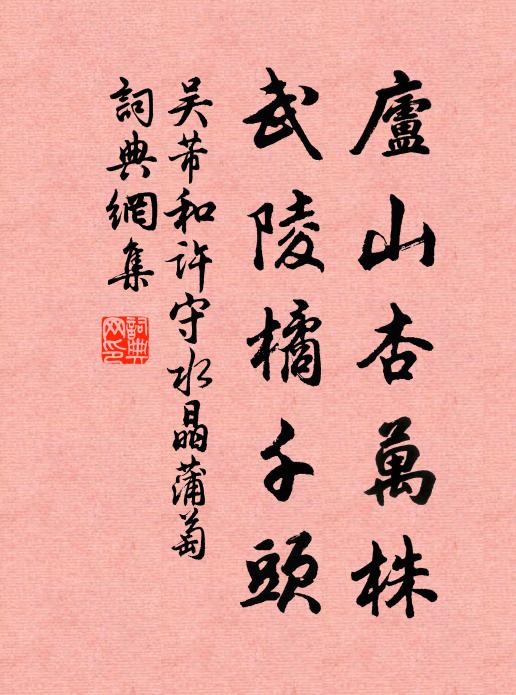 廬山杏萬株
武陵橘千頭
吴芾和許守水晶蒲萄
詞典網集
詞典网印